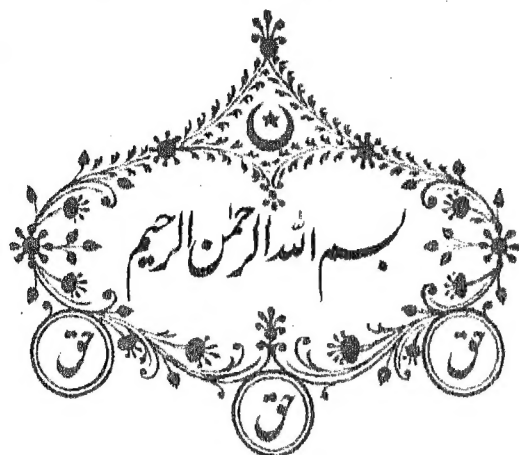 بسم الله الرحمن الرحيم
حق
حق
حق